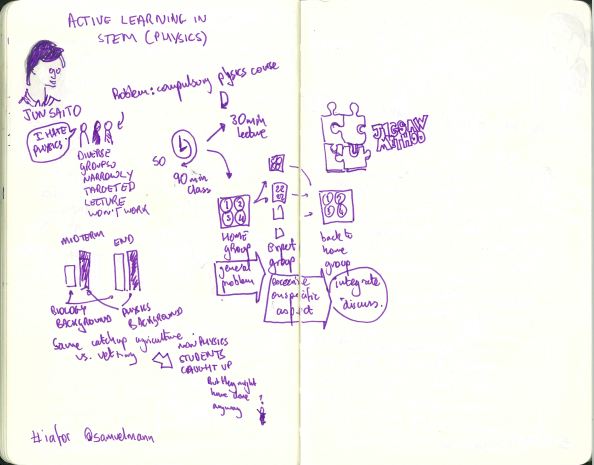 ACTIVE LEARNING IN
STEM (PHYSICS)
JUN SAITO
Problem: compulsory physics course
I HATE
PHYSICS
DIVERSE
GROUPS
NARROWLY
TARGETED
LECTURE
WON'T WORK
30min
lecture
SO
90min
class
JIGSAW
METHOD
1 2
3 4
HOME
GROUP
22
22
Expert
group
1 2
3 4
back to
home
group
general
problem
on specific
aspect
integrate
discuss.
MIDTERM END
BIOLOGY
BACKGROUND
PHYSICS
BACKGROUND
Same catchup agriculture
vs.
NON PHYSICS
STUDENTS
CAUGHT UP
But they might
have done
anyway
?
#iafor @samuelmann